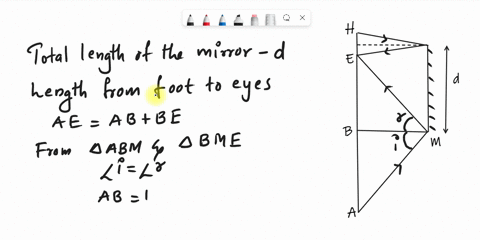 Total length of the mirror - d
Length from foot to eyes
AE = AB + BE
From △ABM & △BME
∠i = ∠r
AB = 1
H
E
B
A
M
d
r
i